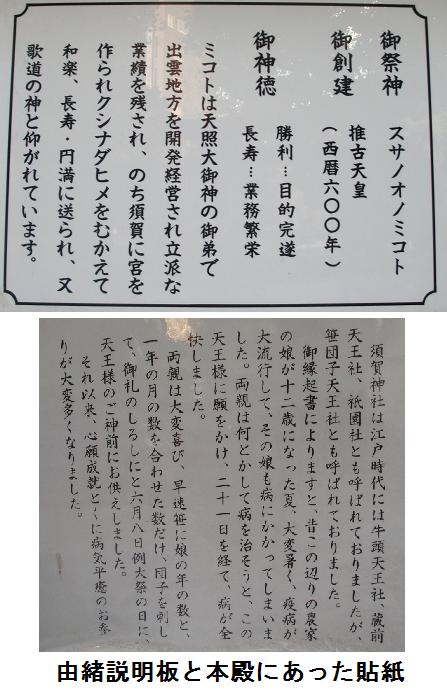 御祭神 スサノオノミコト
御創建 推古天皇
(西暦六〇〇年)
御神徳 勝利…目的完遂
長寿…業務繁栄
ミコトは天照大御神の御弟で
出雲地方を開発経営され立派な
業績を残され、のち須賀に宮を
作られクシナダヒメをむかえて
和楽、長寿・円満に送られ、又
歌道の神と仰がれています。
須賀神社は江戸時代には牛頭天王社、蔵前
天王社、祇園社とも呼ばれておりましたが、
笹団子天王社とも呼ばれておりました。
御縁起書によりますと、昔この辺りの農家
の娘が十二歳になった夏、大変暑く、疫病が
大流行して、その娘も病にかかってしまいま
した。両親は何とかして病を治そうと、この
天王様に願をかけ、二十一日を経て、病が全
快しました。
両親は大変喜び、早速笹に娘の年の数と、
一年の月の数を合わせた数だけ、団子を刺し
て、御礼のしるしにと六月八日例大祭の日に、
天王様のご神前にお供えしました。
それ以来、心願成就とくに病気平癒のお参
りが大変多くなりました。
由緒説明板と本殿にあった貼紙